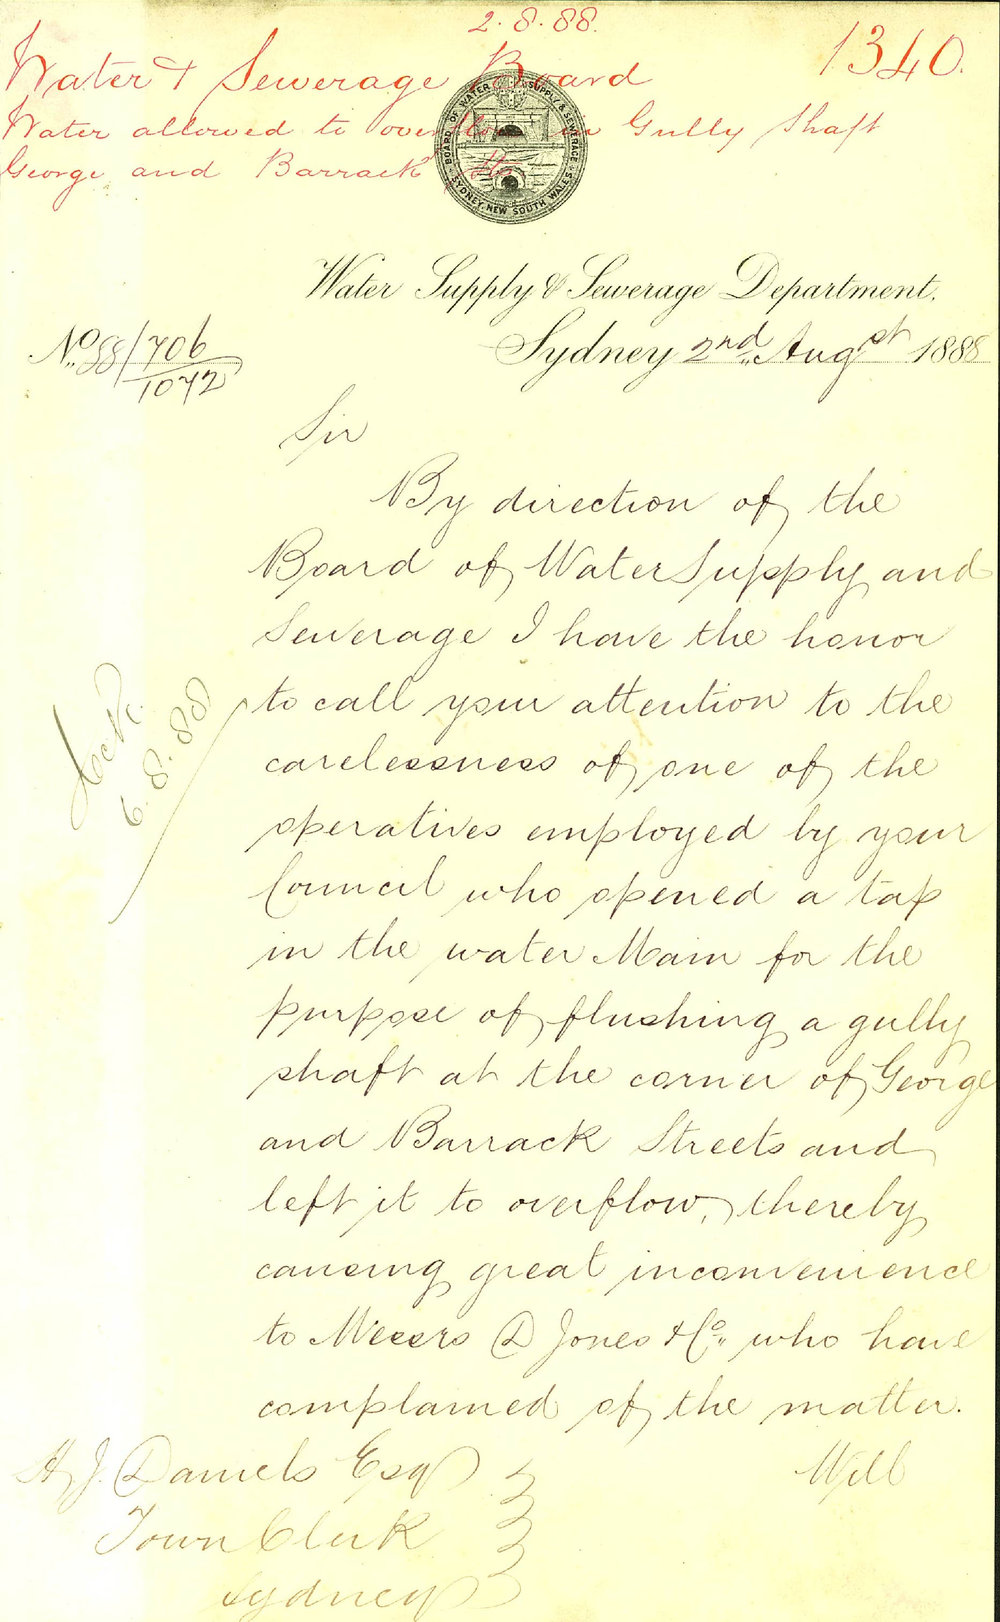 2.8.88.
1340.
Water & Sewerage Board
Water allowed to overflow in Gully Shaft
George and Barrack Sts
BOARD OF WATER SUPPLY & SEWERAGE
SYDNEY, NEW SOUTH WALES
Water Supply & Sewerage Department.
No. 88/706
1072
Sydney 2nd Augst 1888
Sir
By direction of the
Board of Water Supply and
Sewerage I have the honor
to call your attention to the
carelessness of one of the
operatives employed by your
Council who opened a tap
in the water Main for the
purpose of flushing a gully
shaft at the corner of George
and Barrack Streets and
left it to overflow, thereby
causing great inconvenience
to Messrs D Jones & Co. who have
complained of the matter.
Will
H. J. Daniels Esq
Town Clerk
Sydney
6.8.88